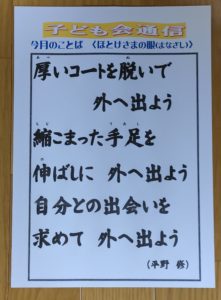 子ども会通信
今月のことば 〈ほとけさまの眼(まなざし)〉
厚いコートを脱いで
外へ出よう
縮こまった手足を
伸ばしに 外へ出よう
自分との出会いを
求めて 外へ出よう
(平野 修)